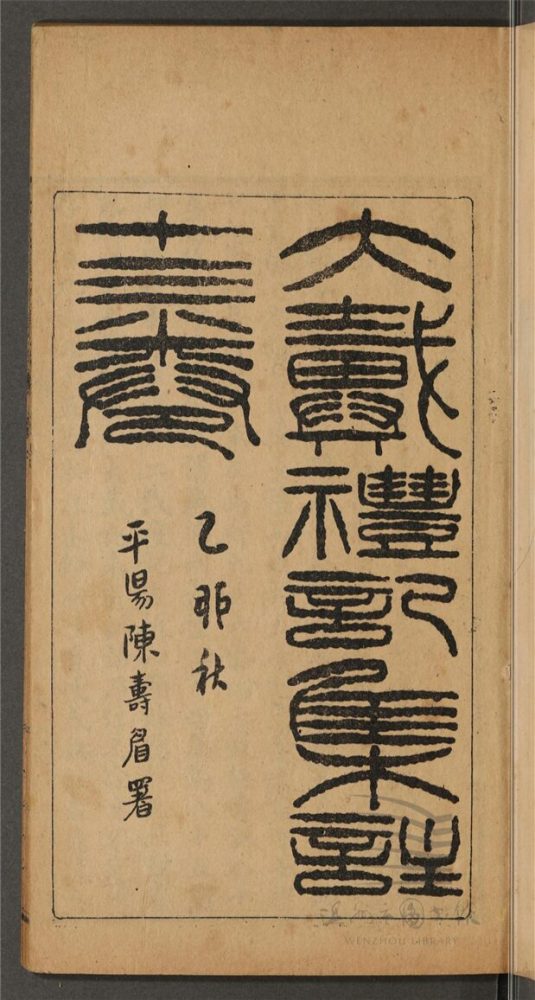 大戴禮記集註
十三卷
乙卯秋
平昜陳壽眉署
温州市图书馆
WENZHOU LIBRARY